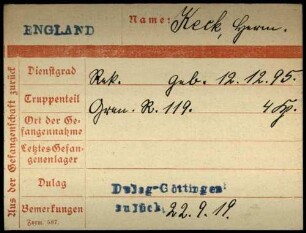 Name: Keck, Herm.
ENGLAND
Aus der Gefangenschaft zurück
Dienstgrad Rek. Geb. 12.12.95.
Truppenteil Gren. R. 119. 4 Kp.
Ort der Gefangennahme
Letztes Gefangenenlager
Dulag Dulag-Göttingen
Bemerkungen zurück 22.9.19.
Form 507.